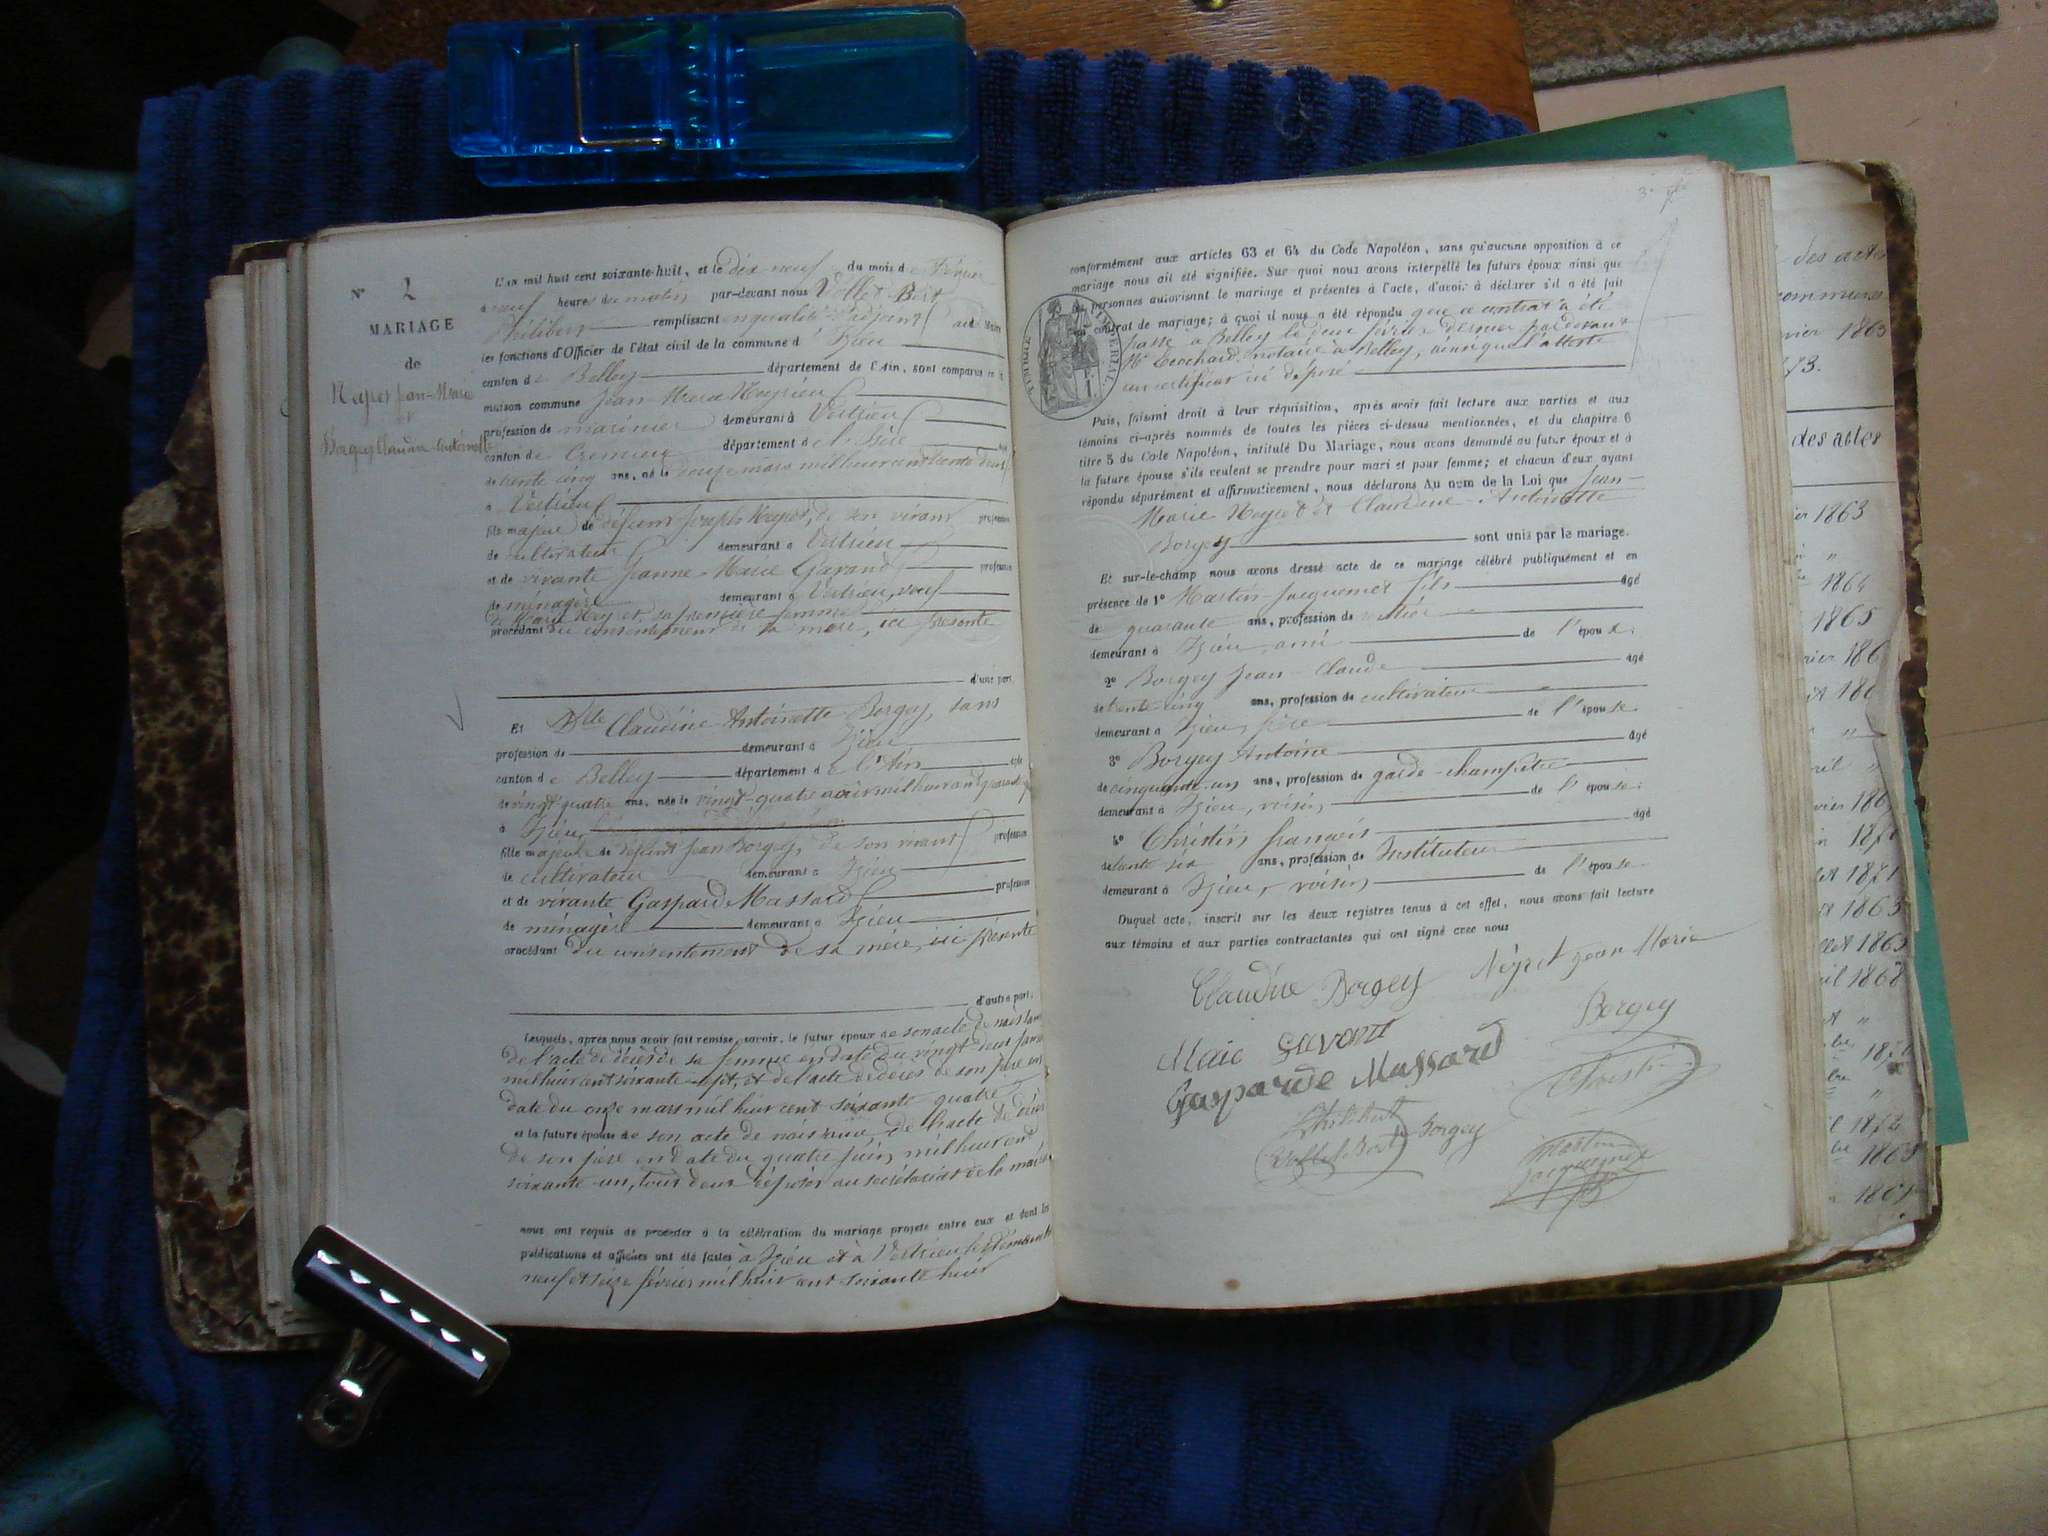 N° 2
MARIAGE
de
Neyret Jean-Marie
et
Borgey Claudine Antoinette
L'an mil huit cent soixante-huit, et le dix neuf du mois de Février
à neuf heures du matin par-devant nous Vollet-Bert
Philibert remplissant en qualité d'adjoint au Maire
les fonctions d'Officier de l'état civil de la commune d'Izieu
canton de Belley département de l'Ain, sont comparus en la
maison commune Jean-Marie Neyret
profession de marinier demeurant à Vertrieu
canton de Crémieu département de l'Isère âgé
de trente cinq ans, né le douze mars mil huit cent trente deux
à Vertrieu
fils majeur de défunt Joseph Neyret, de son vivant profession
de cultivateur demeurant à Vertrieu
et de vivante Jeanne-Marie Gavand profession
de ménagère demeurant à Vertrieu, veuf
de Marie Neyret, sa première femme
procédant du consentement de sa mère, ici présente
d'une part,
Et Dlle Claudine-Antoinette Borgey, sans
profession de demeurant à Izieu
canton de Belley département de l'Ain âgée
de vingt quatre ans, née le vingt-quatre août mil huit cent quarante
à Izieu
fille majeure de défunt Jean Borgey, de son vivant profession
de cultivateur demeurant à Izieu
et de vivante Gaspard Massard profession
de ménagère demeurant à Izieu
procédant du consentement de sa mère, ici présente
d'autre part.
Lesquels, après nous avoir fait remise, savoir, le futur époux de son acte de naissance
de l'acte de décès de sa femme en date du vingt deux
mil huit cent soixante sept, et de l'acte de décès de son père en
date du onze mars mil huit cent soixante quatre
et la future épouse de son acte de naissance, de l'acte de décès
de son père en date du quatre juin mil huit cent
soixante-un, tous deux déposés au secrétariat de la mairie
nous ont requis de procéder à la célébration du mariage projeté entre eux et dont les
publications et affiches ont été faites à Izieu et à Vertrieu les dimanches
neuf et seize février mil huit cent soixante huit
3
conformément aux articles 63 et 64 du Code Napoléon, sans qu'aucune opposition à ce
mariage nous ait été signifiée. Sur quoi nous avons interpellé les futurs époux ainsi que
personnes autorisant le mariage et présentes à l'acte, d'avoir à déclarer s'il a été fait
contrat de mariage; à quoi il nous a été répondu que ce contrat a été
passé à Belley le deux février dernier par devant
Me notaire à Belley, ainsi que l'atteste
un certificat ici déposé
TIMBRE IMPERIAL
Puis, faisant droit à leur réquisition, après avoir fait lecture aux parties et aux
témoins ci-après nommés de toutes les pièces ci-dessus mentionnées, et du chapitre 6
titre 5 du Code Napoléon, intitulé Du Mariage, nous avons demandé au futur époux et à
la future épouse s'ils veulent se prendre pour mari et pour femme; et chacun d'eux ayant
répondu séparément et affirmativement, nous déclarons Au nom de la Loi que Jean-
Marie Neyret et Claudine-Antoinette
Borgey sont unis par le mariage.
Et sur-le-champ nous avons dressé acte de ce mariage célébré publiquement et en
présence de 1° Martin-Jacquemet fils âgé
de quarante ans, profession de
demeurant à Izieu, ami de l'épouse;
2° Borgey Jean-Claude âgé
de trente-cinq ans, profession de cultivateur
demeurant à Izieu, frère de l'épouse
3° Borgey Antoine âgé
de cinquante-un ans, profession de garde-champêtre
demeurant à Izieu, voisin de l'épouse;
4° Christin François âgé
de trente six ans, profession de Instituteur
demeurant à Izieu, voisin de l'épouse
Duquel acte, inscrit sur les deux registres tenus à cet effet, nous avons fait lecture
aux témoins et aux parties contractantes qui ont signé avec nous
Claudine Borgey Neyret Jean Marie
Marie Gavant Borgey
Gasparde Massard Christin
Philibert
Vollet-Bert Borgey
Martin
Jacquemet
des actes
communes
1863
73.
des actes
1863
1864
1865
1871
1863
1868
1872